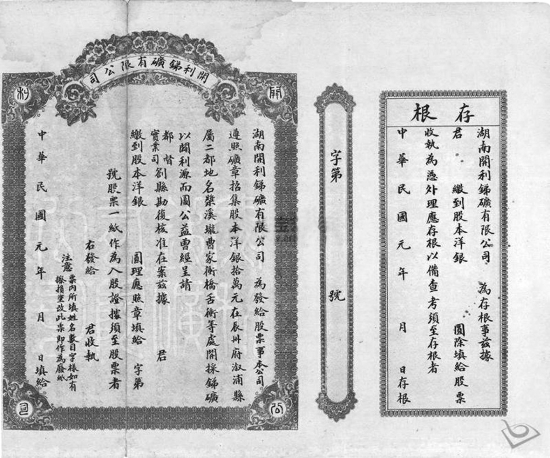 存根
湖南開利錦礦有限公司 為存根事茲據
君 繳到股本洋銀 圓除填給股票
收執為憑外理應存根以備查考須至存根者
中華民國元年 月 日存根
字第 號
開利銻礦有限公司
開
利
公
司
湖南開利銻礦有限公司 為發給股票事本公司
遵照礦章招集股本洋銀拾萬元在辰州府溆浦縣
屬二都地名 溪壠曹家衝橋舌衝等處開採銻礦
以開利源而圖公益曾經呈請
都督
實業司劄縣勘復核准在案茲據 君
繳到股本洋銀 圓理應照章填給 字第
號股票一紙作為入股證據須至股票者
右發給 君收執
注意 票內所填姓名數目字樣如有
挖損塗改此票即作為廢紙
中華民國元年 月 日填給